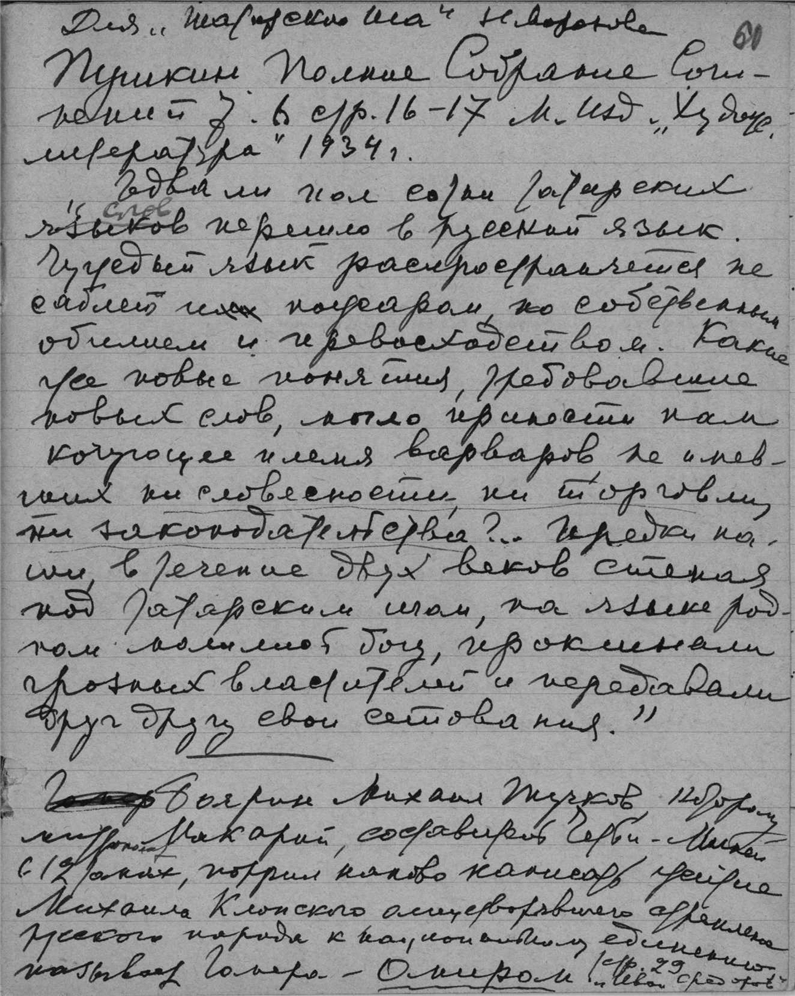 Для „Татарского ига" Наровчатова
60
Пушкин Полное Собрание Сочи-
нений т. 6 стр. 16-17 М. Изд „Худож.
литература" 1934 г.
„Едва ли пол сотни татарских
слов
языков перешло в русский язык.
Чуждый язык распространяется не
саблей и пожарами, но собственным
обилием и превосходством. Какие
же новые понятия, требовавшие
новых слов, могло принести нам
кочующее племя варваров, не имев-
ших ни словесности, ни торговли,
ни законодательства?.. Предки на-
ши, в течение двух веков стеная
под татарским игом, на языке род-
ном молились богу, проклинали
грозных властителей и передавали
друг другу свои сетования."
Боярин Михаил Тучков, которому
митрополит Макарий, составитель Четьи-Миней
в 12 томах, поручил наново написать житие
Михаила Клопского олицетворявшего стремление
русского народа к национальному единению
называет Гомера - Омиром (стр. 29